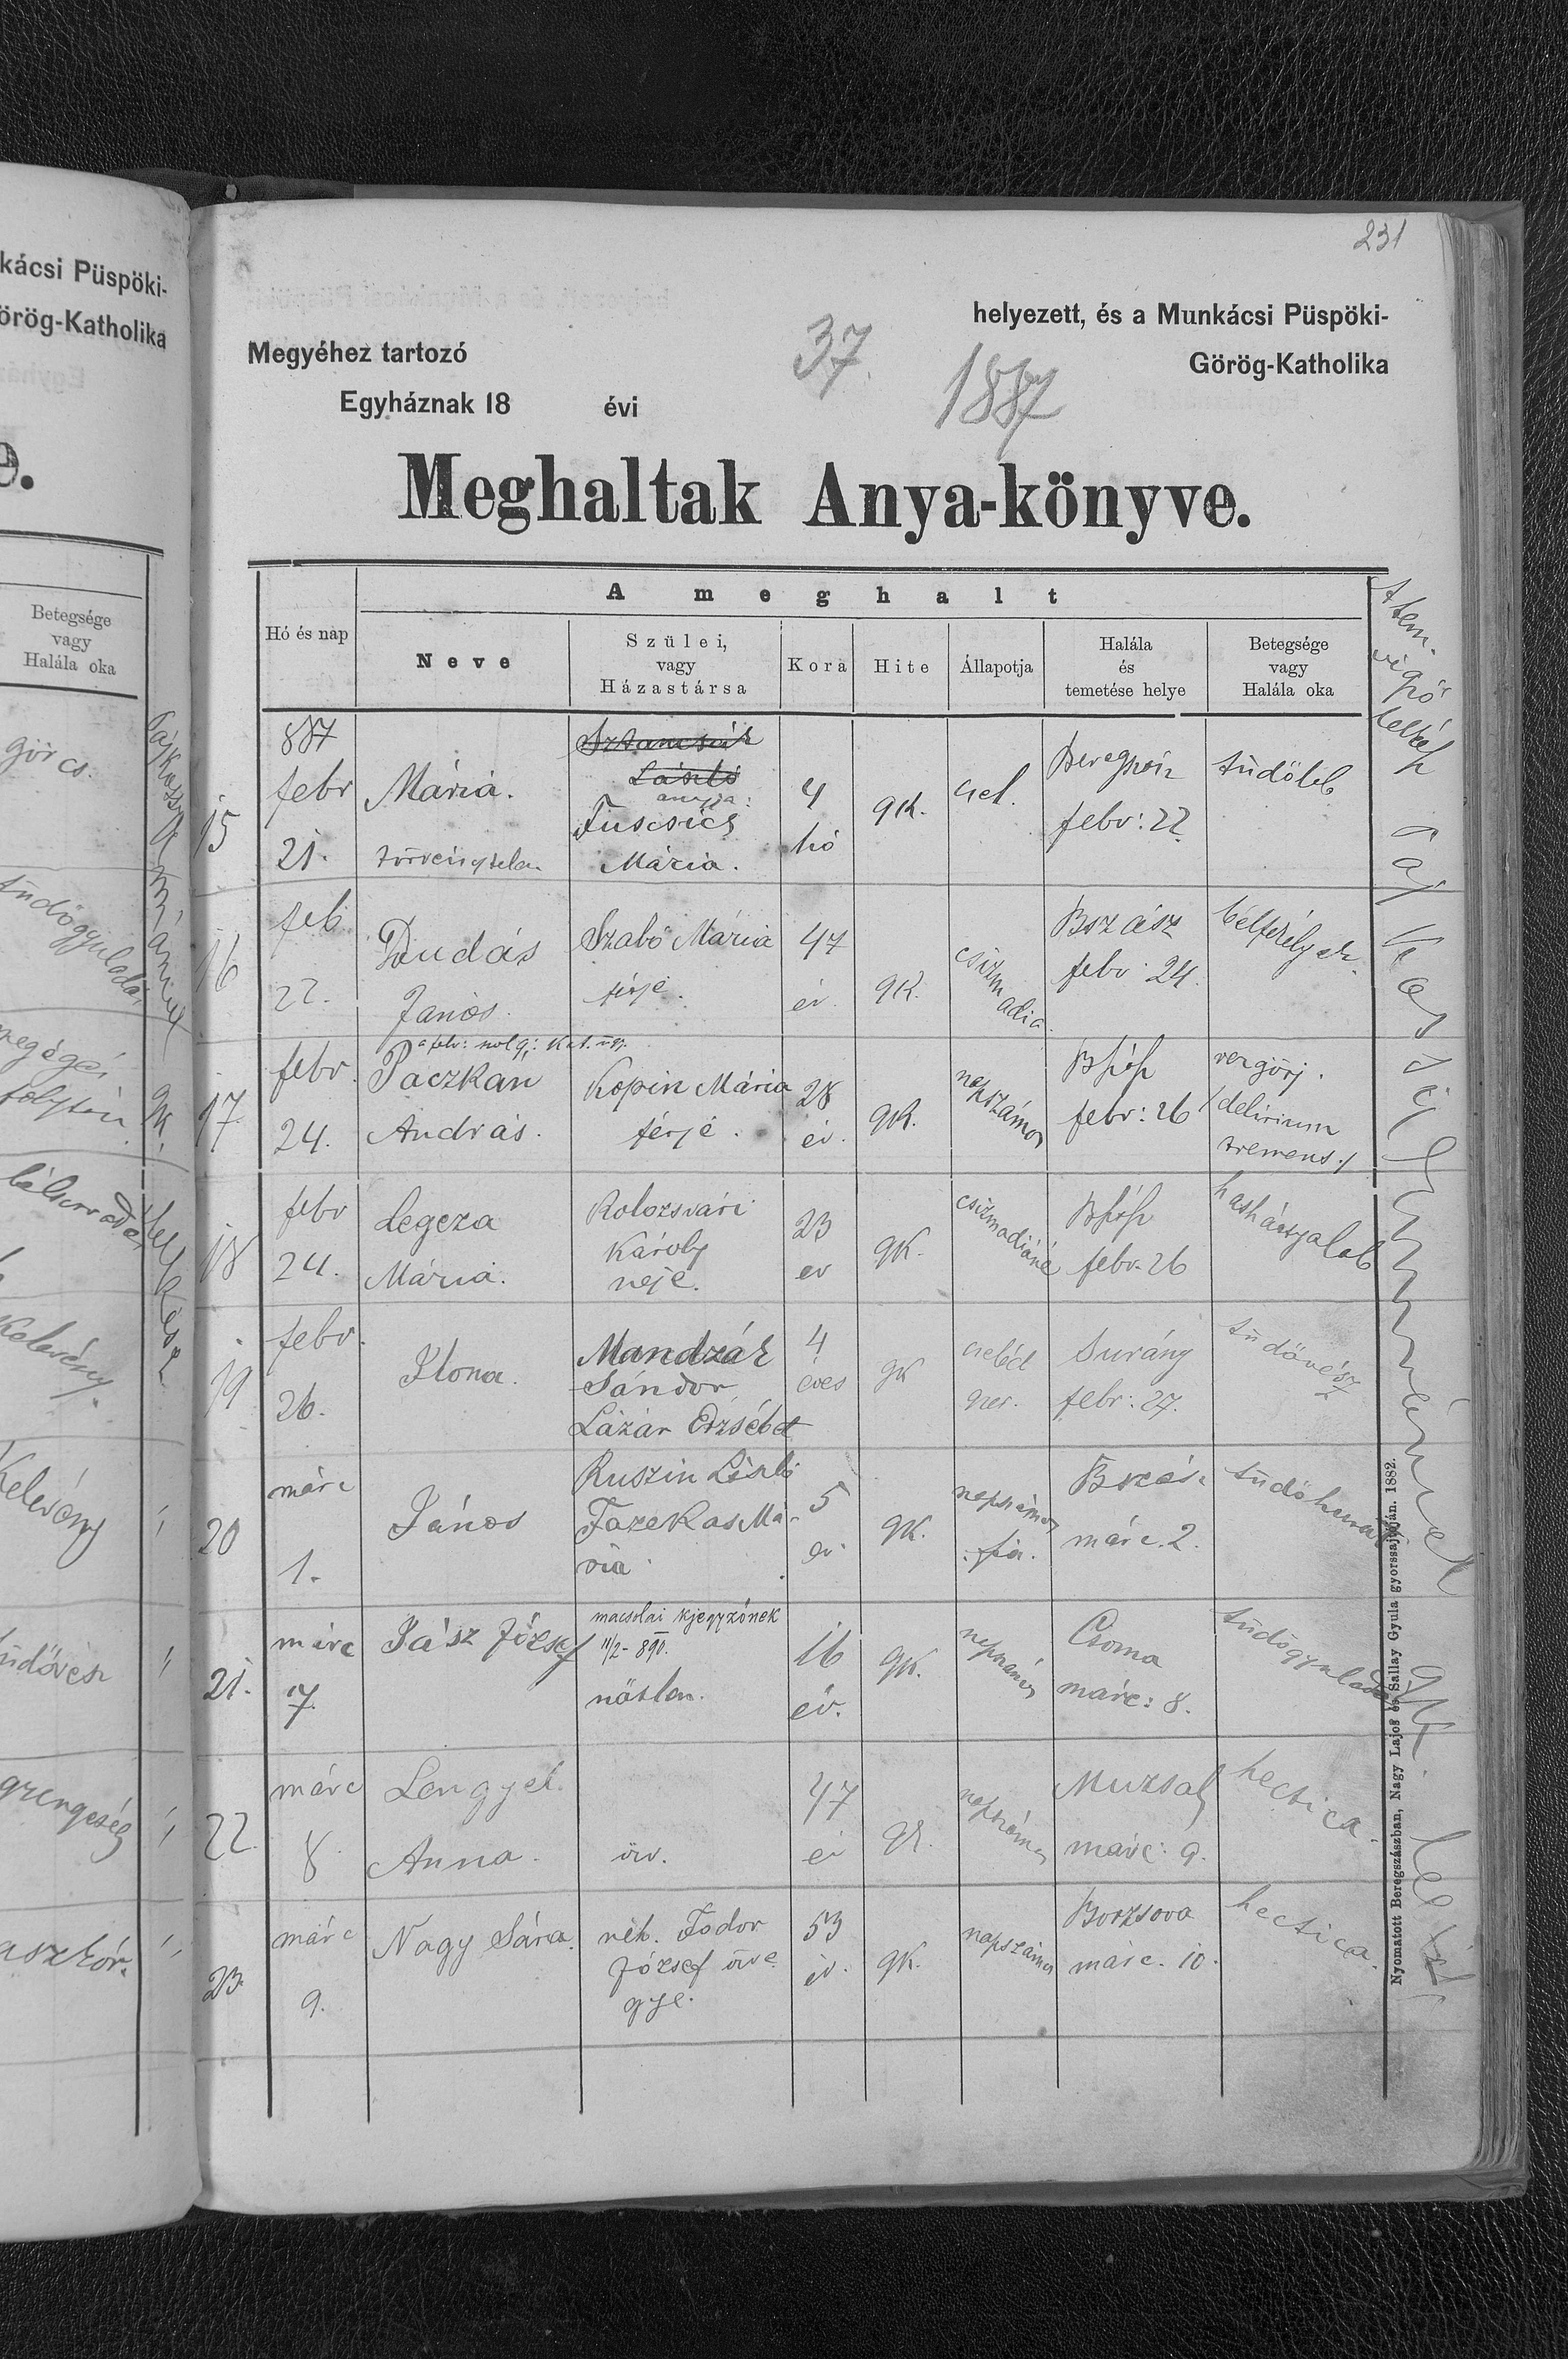 kácsi Püspöki-
örög-Katholika
e.
Betegsége
vagy
Halála oka
görcs.
tüdőgyuladás
kelevény.
Kelevény
tüdővész
231
helyezett, és a Munkácsi Püspöki-
Megyéhez tartozó
37.
Görög-Katholika
Egyháznak 18 évi
1887
Meghaltak Anya-könyve.
A meghalt
Hó és nap
Neve
Szülei,
vagy
Házastársa
Kora
Hite
Állapotja
Halála
és
temetése helye
Betegsége
vagy
Halála oka
15
887
febr
21.
Mária.
törvénytelen
Sztancsák
László
anyja:
Fuscsics
Mária.
4
hó
gk.
csel.
Beregszász
febr: 22.
tüdőlob
16
feb
22.
Dudás
János.
Szabó Mária
férje.
47
év.
gk.
csizmadia.
Bszász
febr: 24.
bélférelyek.
17
febr.
24.
Paczkan
András.
Kopin Mária
férje.
28
év.
gk.
napszámos
febr: 26
vergörj.
/delirium
tremens./
18
febr
24.
Legeza
Mária.
Kolozsvári
Károly
neje.
23
év
gk.
csizmadiáné
febr. 26
hashártyalob
19
febr.
26.
Ilona.
Mandzák
Sándor
Lázár Erzsébet
4
éves
gk
cseléd
gyer.
Surány
febr: 27.
tüdővész
20
márc
1.
János
Ruszin László
Fazekas Má-
ria
5
év
gk.
napszámos
fia.
Bszász
márc. 2.
tüdőhurut
21.
márc
7.
Jász József
macsolai kjegyzőnek
11/2-890.
nőtlen.
16
év.
gk.
napszámos
Csoma
márc: 8.
tüdőgyuladás
22.
márc
8
Lengyel
Anna.
özv.
47
év
gk.
napszámos
Muzsaly
márc: 9.
hectica.
23.
márc
9.
Nagy Sára.
néh. Fodor
József özve
gye.
53
év.
gk.
napszámos
Borzsova
márc. 10.
hectica.
Nyomatott Beregszászban, Nagy Lajos és Sallay Gyula gyorssajtóján. 1882.